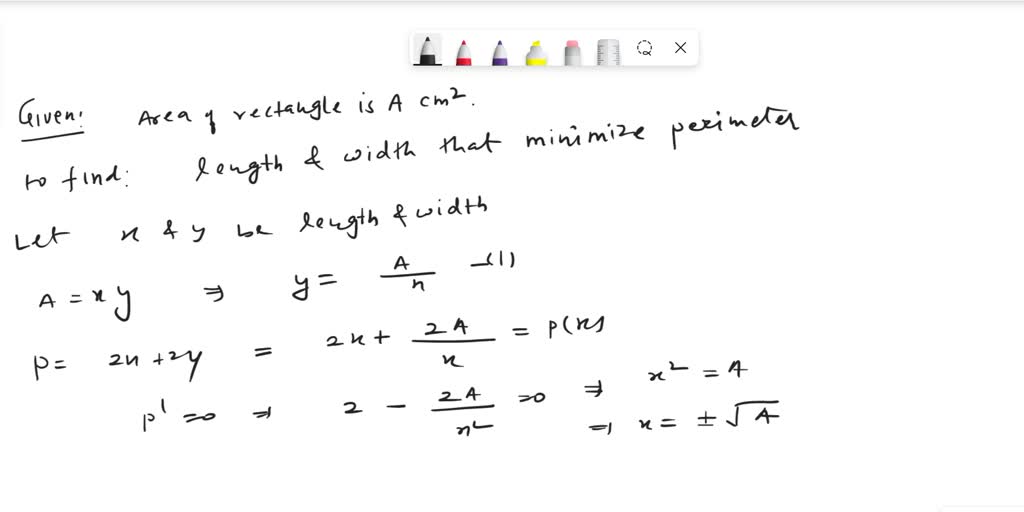 Given: Area of rectangle is A cm².
to find: length & width that minimize perimeter
Let x & y be length & width
A = xy ⇒ y = A/x —(1)
P = 2x + 2y = 2x + 2A/x = P(x)
P' = 0 ⇒ 2 - 2A/x² = 0 ⇒ x² = A
⇒ x = ±√A